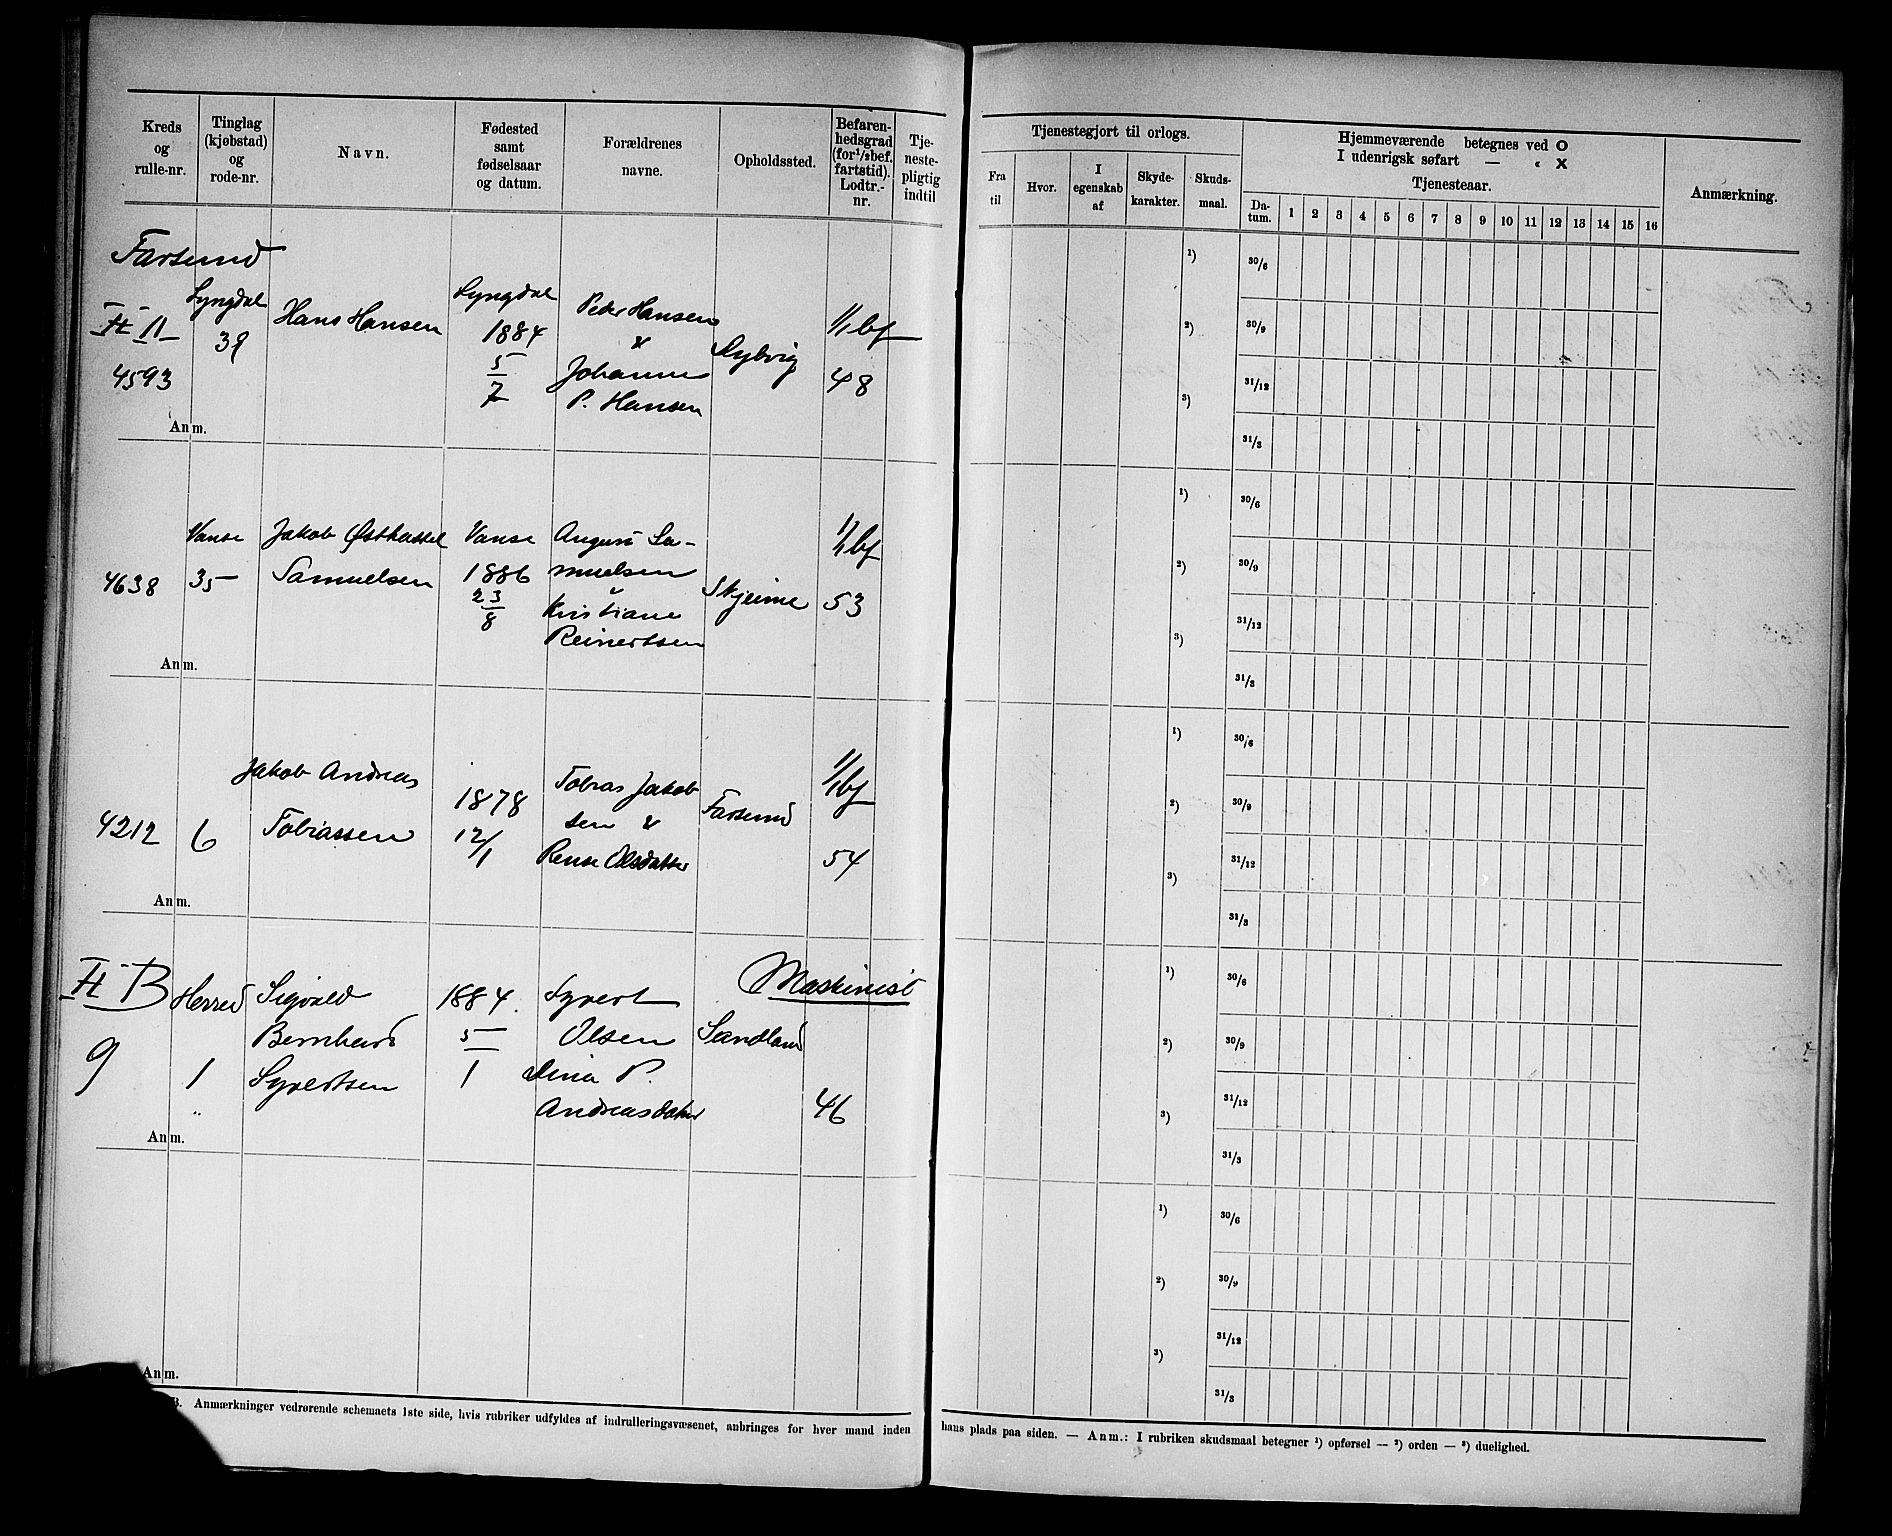 Kreds
og
rulle-nr.
Tinglag
(kjøbstad)
og
rode-nr.
Navn.
Fødested
samt
fødselsaar
og datum.
Forældrenes
navne.
Opholdssted.
Befaren-
hedsgrad
(for 1/2 bef.
fartstid).
Lodtr.-
nr.
Tje-
neste-
pligtig
indtil
Tjenestegjort til orlogs.
Fra
til
Hvor.
I
egenskab
af
Skyde-
karakter.
Skuds-
maal.
Hjemmeværende betegnes ved O
I udenrigsk søfart — « X
Tjenesteaar.
Da-
tum.
1 2 3 4 5 6 7 8 9 10 11 12 13 14 15 16
Anmærkning.
Farsund
II 11
4593
Lyngdal
39
Hans Hansen
Lyngdal
1884
5/7
Peder Hansen
&
Johanne
P. Hansen
1/1 bf
48
Anm.
1) 2) 3)
30/6
30/9
31/12
31/3
4638
Vanse
35
Jakob Østhassel
Samuelsen
Vanse
1886
23/8
August Sa-
muelsen
&
Kristiane
Reinertsen
Skjeime
1/1 bf
53
Anm.
1) 2) 3)
30/6
30/9
31/12
31/3
4212
6
Jakob Andreas
Tobiassen
1878
12/1
Tobias Jakob
sen &
Olsdatter
Farsund
1/1 bf
54
Anm.
1) 2) 3)
30/6
30/9
31/12
31/3
II B
9
Herred
1
"
Sigvald
Bernhard
Syvertsen
1884.
5
1
Syvert
Olsen
Dina P.
Andreasdatter
Sandland
Maskinist
46
Anm.
1) 2) 3)
30/6
30/9
31/12
31/3
Anm.
1) 2) 3)
30/6
30/9
31/12
31/3
B. Anmærkninger vedrørende schemaets 1ste side, hvis rubriker udfyldes af indrulleringsvæsenet, anbringes for hver mand inden
hans plads paa siden. — Anm.: I rubriken skudsmaal betegner 1) opførsel — 2) orden — 3) duelighed.